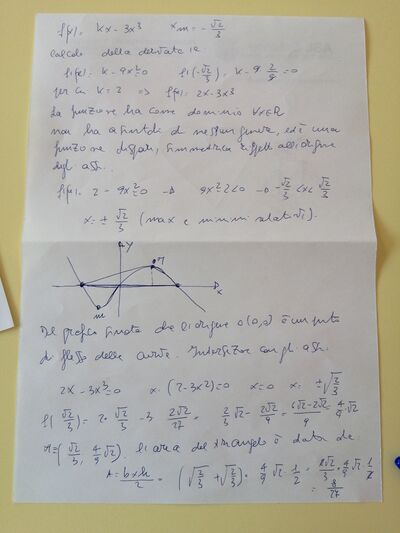 f(x) = kx - 3x³   xm = - √2/3
calcolo della derivata 1ª
f'(x) = k - 9x² = 0   f'(-√2/3) = k - 9 · 2/9 = 0
per cui k = 2 ⇒ f(x) = 2x - 3x³
La funzione ha come dominio ∀x∈R
non ha asintoti di nessun genere, ed è una
funzione dispari, simmetrica rispetto all'origine
degli assi.
f'(x) = 2 - 9x² = 0 → 9x² - 2 < 0 → -√2/3 < x < √2/3
x = ± √2/3 (max e minimi relativi).
y
M
x
m
Dal grafico si nota che l'origine O(0,0) è un punto
di flesso della curva. Intersezione con gli assi:
2x - 3x³ = 0   x · (2 - 3x²) = 0   x = 0   x = ±√2/3
f(√2/3) = 2 · √2/3 - 3 2√2/27 = 2/3 √2 - 2√2/9 = 6√2 - 2√2/9 = 4/9 √2
M = (√2/3, 4/9 √2). L'area del triangolo è data da
A = b x h/2 = (√2/3 + √2/3) · 4/9 √2 · 1/2 = 2√2/3 · 4/9 √2 · 1/2
= 8/27